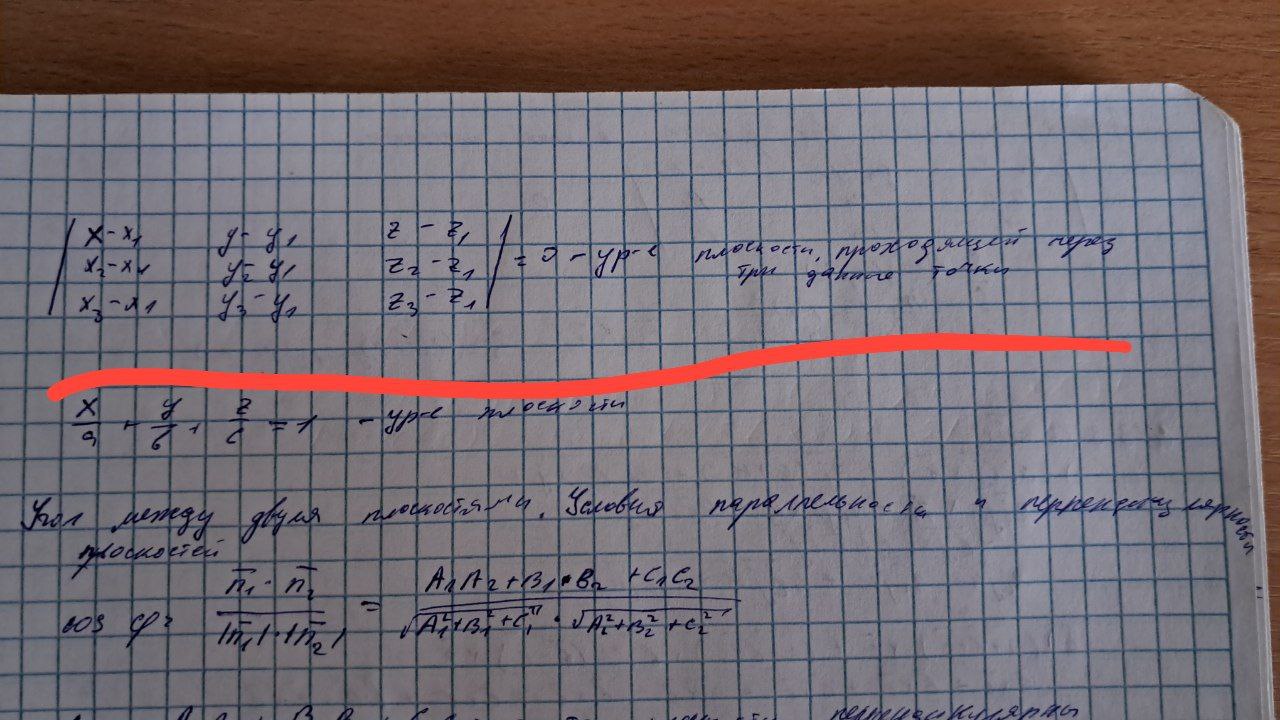 | x-x₁ y-y₁ z-z₁ |
| x₂-x₁ y₂-y₁ z₂-z₁ | = 0 - ур-е плоскости, проходящей через
| x₃-x₁ y₃-y₁ z₃-z₁ | три данные точки
x/a + y/b + z/c = 1 - ур-е плоскости
Угол между двумя плоскостями. Условия параллельности и перпендикулярности
плоскостей
cos φ = (n̅₁ · n̅₂) / (|n̅₁| · |n̅₂|) = (A₁A₂ + B₁·B₂ + C₁C₂) / (√(A₁²+B₁²+C₁²) · √(A₂²+B₂²+C₂²))
перпендикулярны